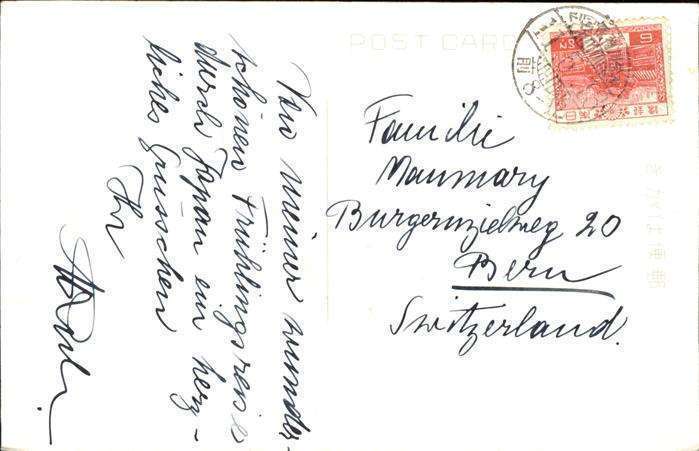 POST CARD
Von meiner wunder-
schönen Frühlingsreise
durch Japan ein herz-
liches Grüsschen
Ihr
Familie
Maumary
Burgernzielweg 20
Bern
Switzerland.
きかは便郵